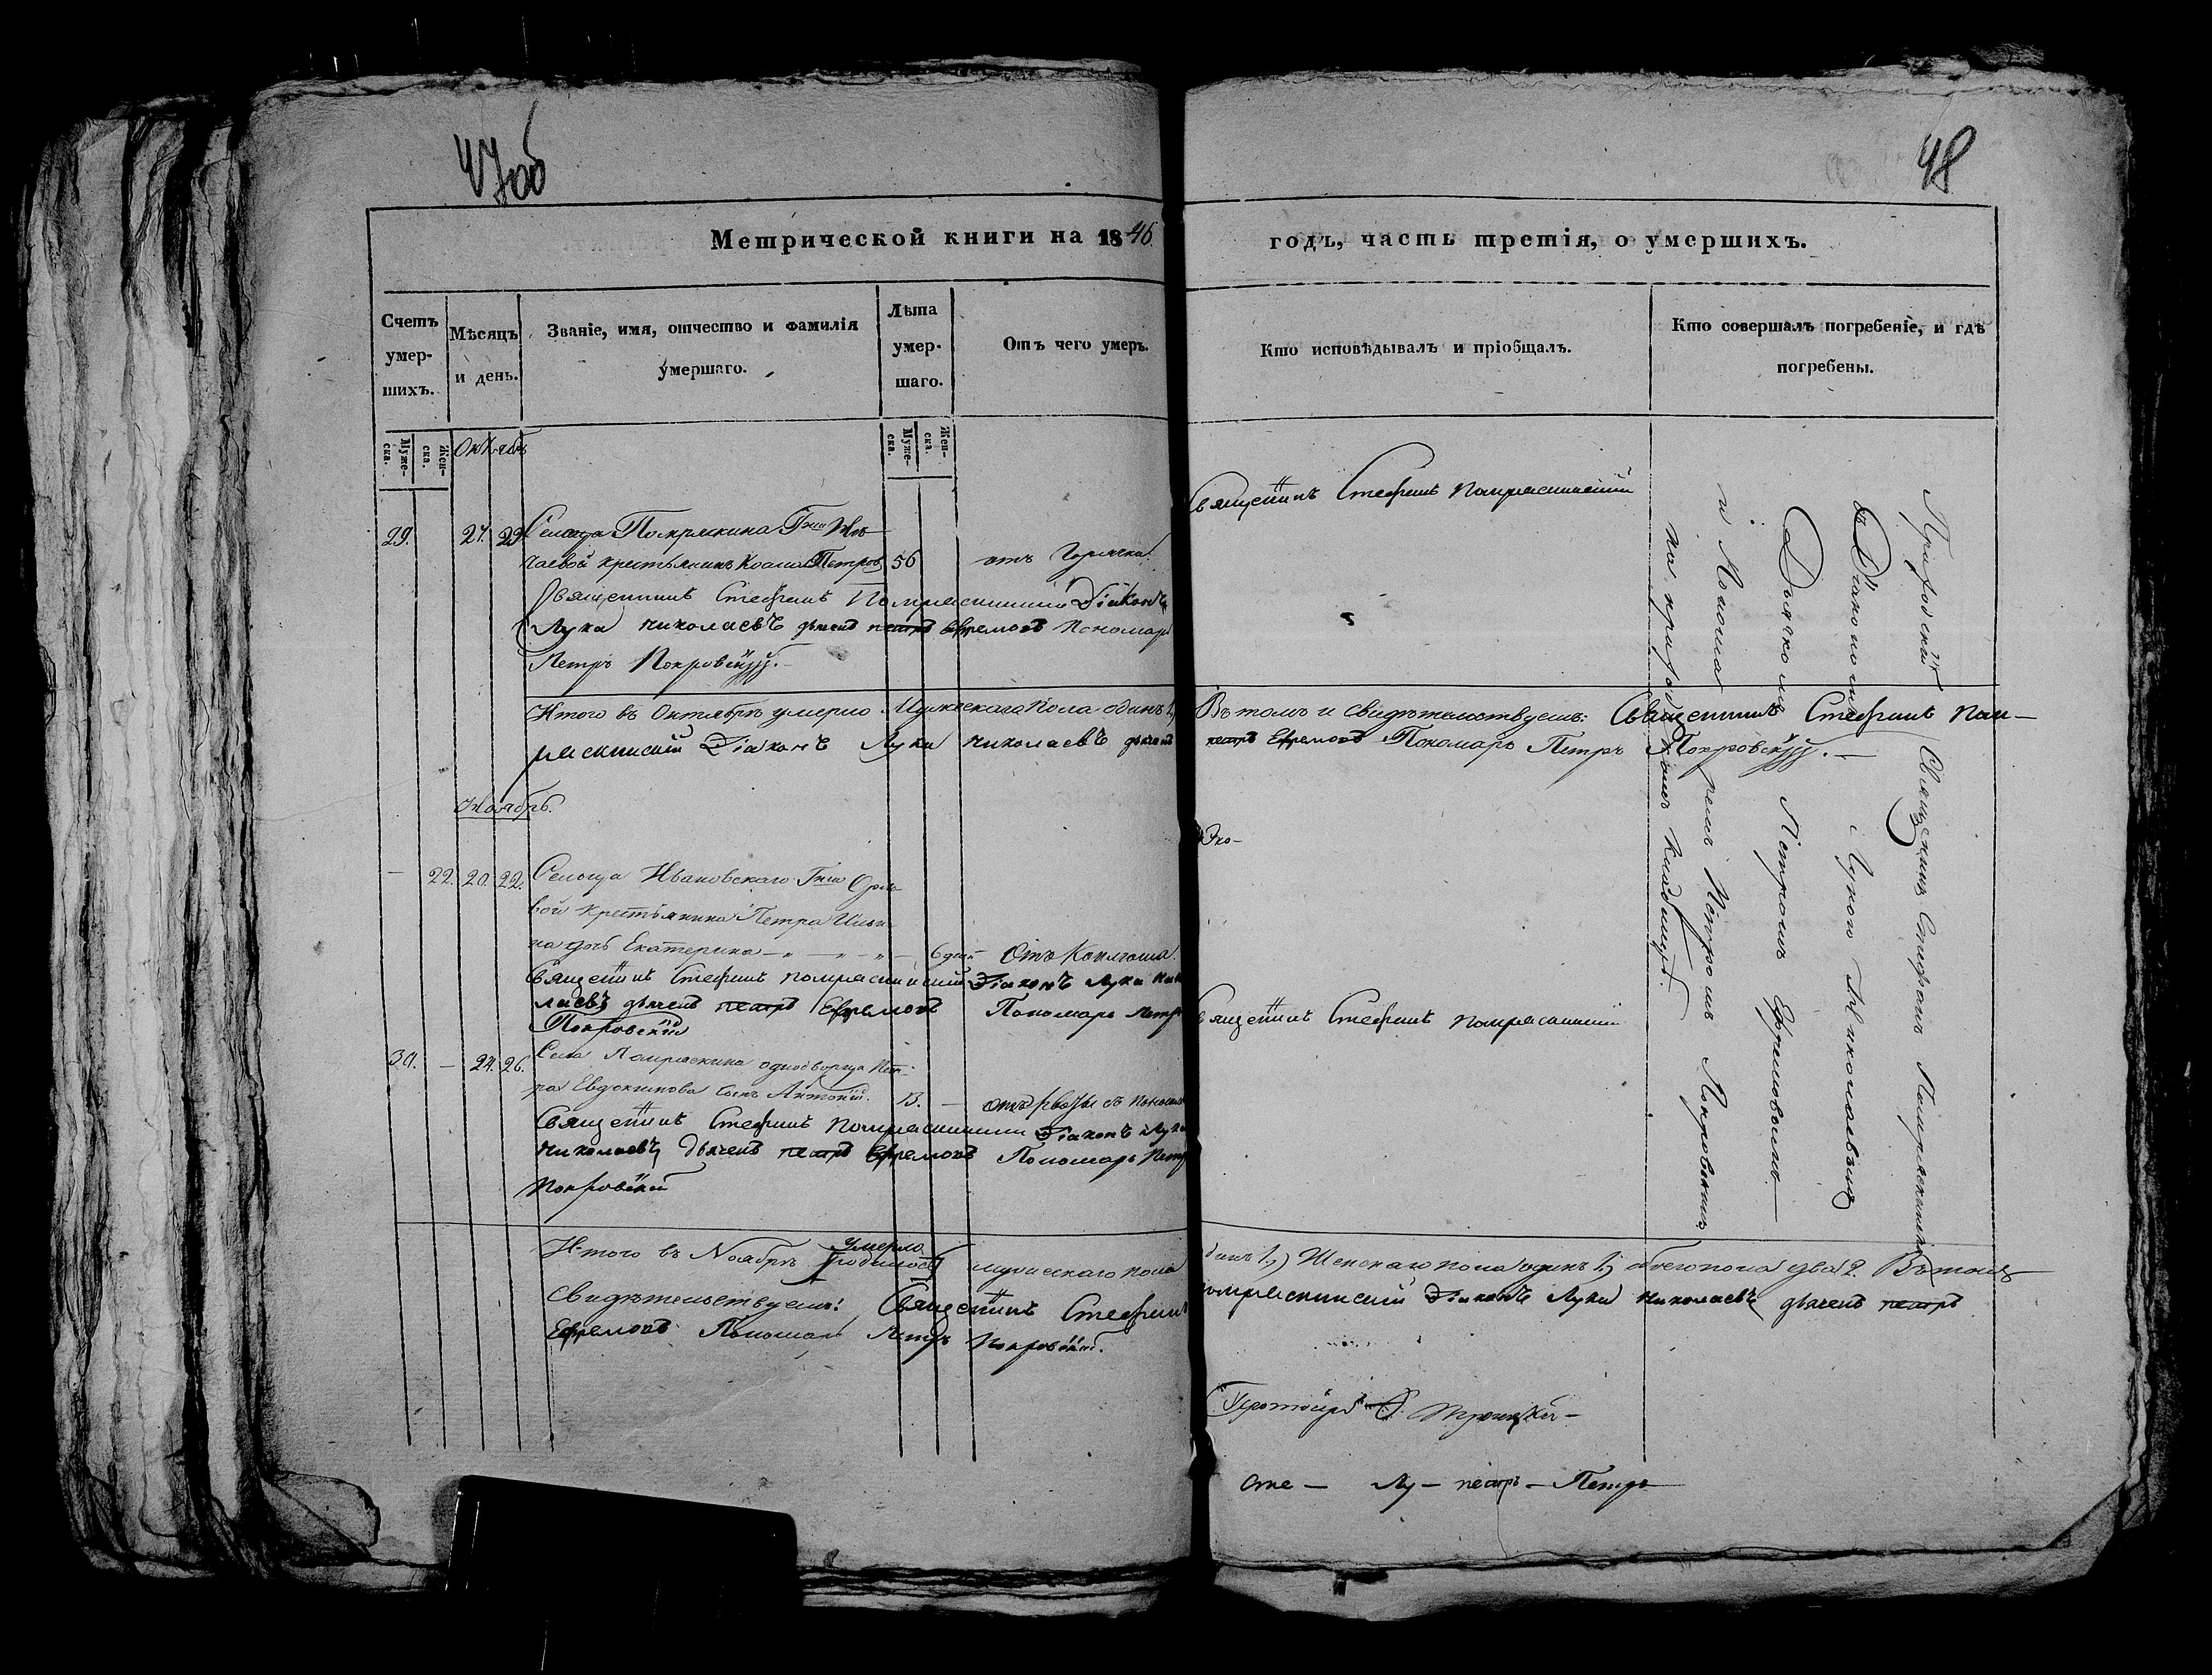 47об
48
Метрической книги на 1846
годъ, часть третія, о умершихъ.
Счетъ умер-шихъ.
Мѣсяцъ и день.
Званіе, имя, отчество и фамилія
умершаго.
Лѣта умер-шаго.
Отъ чего умеръ.
Кто исповѣдывалъ и пріобщалъ.
Кто совершалъ погребеніе, и гдѣ
погребены.
Муже-ска.
Жен-ска.
Муже-ска.
Жен-ска.
Октябрь
29. 27. 29. Сельца
крестьянинъ Петровъ 56 отъ Горячки
Священникъ Стефанъ Діаконъ
Лука Николаевъ дьячекъ петръ Ефремовъ Пономарь
Петръ Покровскій.
Священникъ Стефанъ
Итого въ Октябрѣ умерло Мужескаго пола одинъ 1,
Діаконъ Лука Николаевъ дьячекъ
Въ томъ и свидѣтельствуемъ: Священникъ Стефанъ
петръ Ефремовъ Пономарь Петръ Покровскій.
Ноябрь.
— 22. 20. 22. Сельца Ивановскаго Гжи Орло-
вой крестьянина Петра Ильи-
на дочь Екатерина 6 дней Отъ Коклюша.
Священникъ Стефанъ Діаконъ Лука Нико
лаевъ дьячекъ петръ Ефремовъ Пономарь Петръ
Покровскій
30. — 24. 26. Села однодворца Пет-
ра Евдокимова сынъ Антоній. 13. —
Священникъ Стефанъ Діаконъ Лука
Николаевъ дьячекъ петръ Ефремовъ Пономарь Петръ
Покровскій
Священникъ Стефанъ
Приходскій Священникъ Стефанъ
съ Діакономъ Лукою Николаевымъ
Дьячкомъ Петромъ Ефремовымъ
и Пономаремъ Петромъ Покровскимъ
на приходскомъ кладбищѣ.
умерло
Итого въ Ноябрѣ родилось мужескаго пола
одинъ 1,) Женскаго пола одинъ 1,) обоего пола два 2. Въ томъ
Свидѣтельствуемъ: Священникъ Стефанъ
Діаконъ Лука Николаевъ дьячекъ петръ
Ефремовъ Пономарь Петръ Покровскій.
Протоіерей Троицкій
Сте — Лу — петръ — Петръ